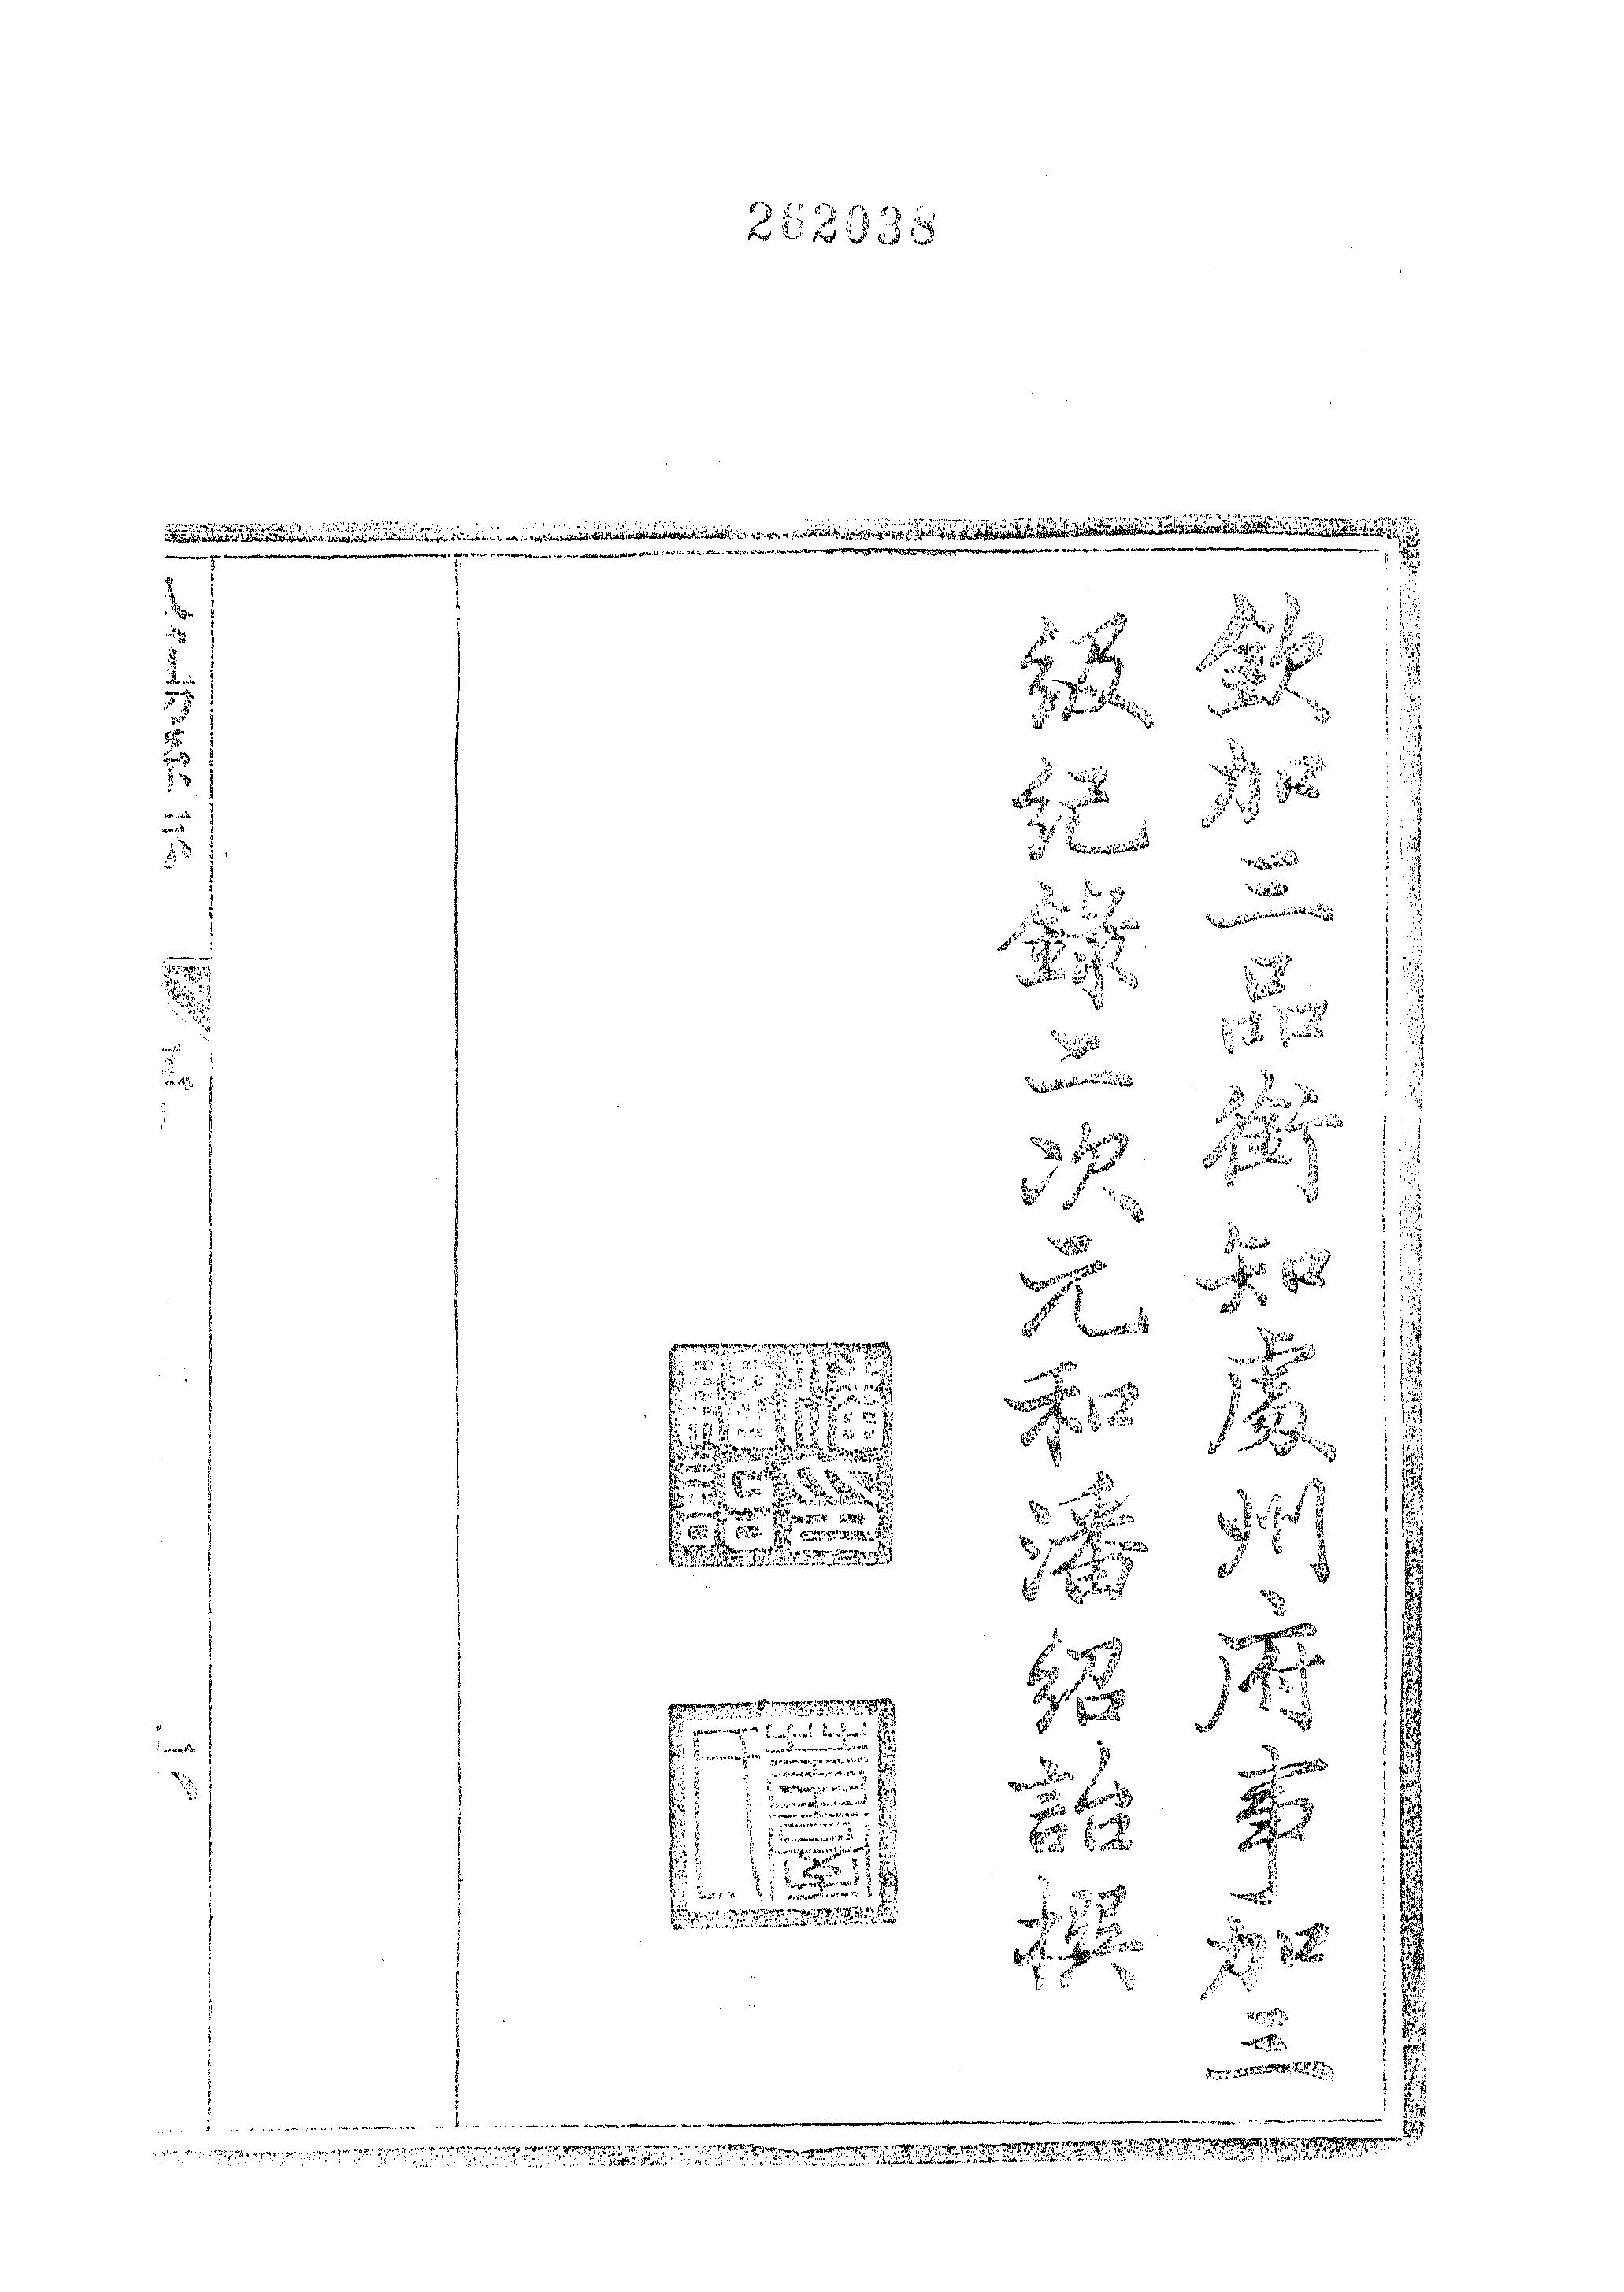 262038
欽加三品銜知處州府事加三
級紀錄二次元和潘紹詒撰
潘紹詒印